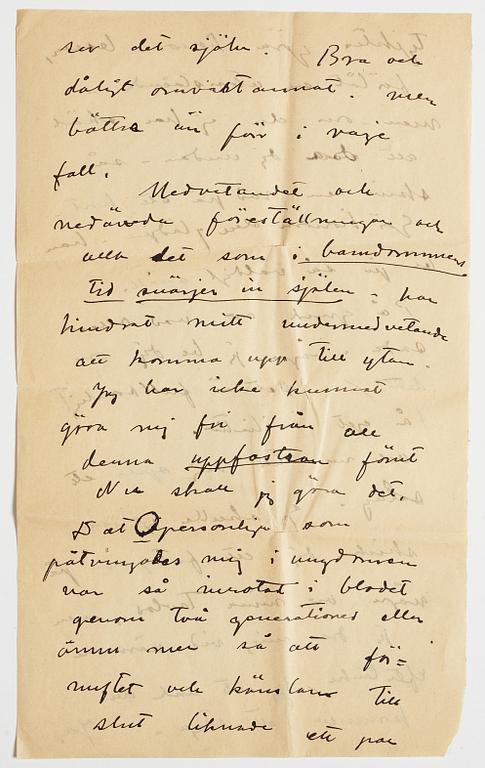 ser det själv. Bra och
dåligt omvartannat. men
bättre än förr i varje
fall.
Medvetandet och
nedärvda föreställningar och
allt det som i barndommens
tid snärjer in själen - har
hindrat mitt undermedvetande
att komma upp till ytan.
Jag har icke kunnat
göra mig fri från all
denna uppfostran förut
Nu skall jag göra det.
Det Opersonliga som
påtvingades mig i ungdomen
var så inrotat i blodet
genom två generationer eller
ännu mer så att för=
nuftet och känslan till
slut liknade ett par